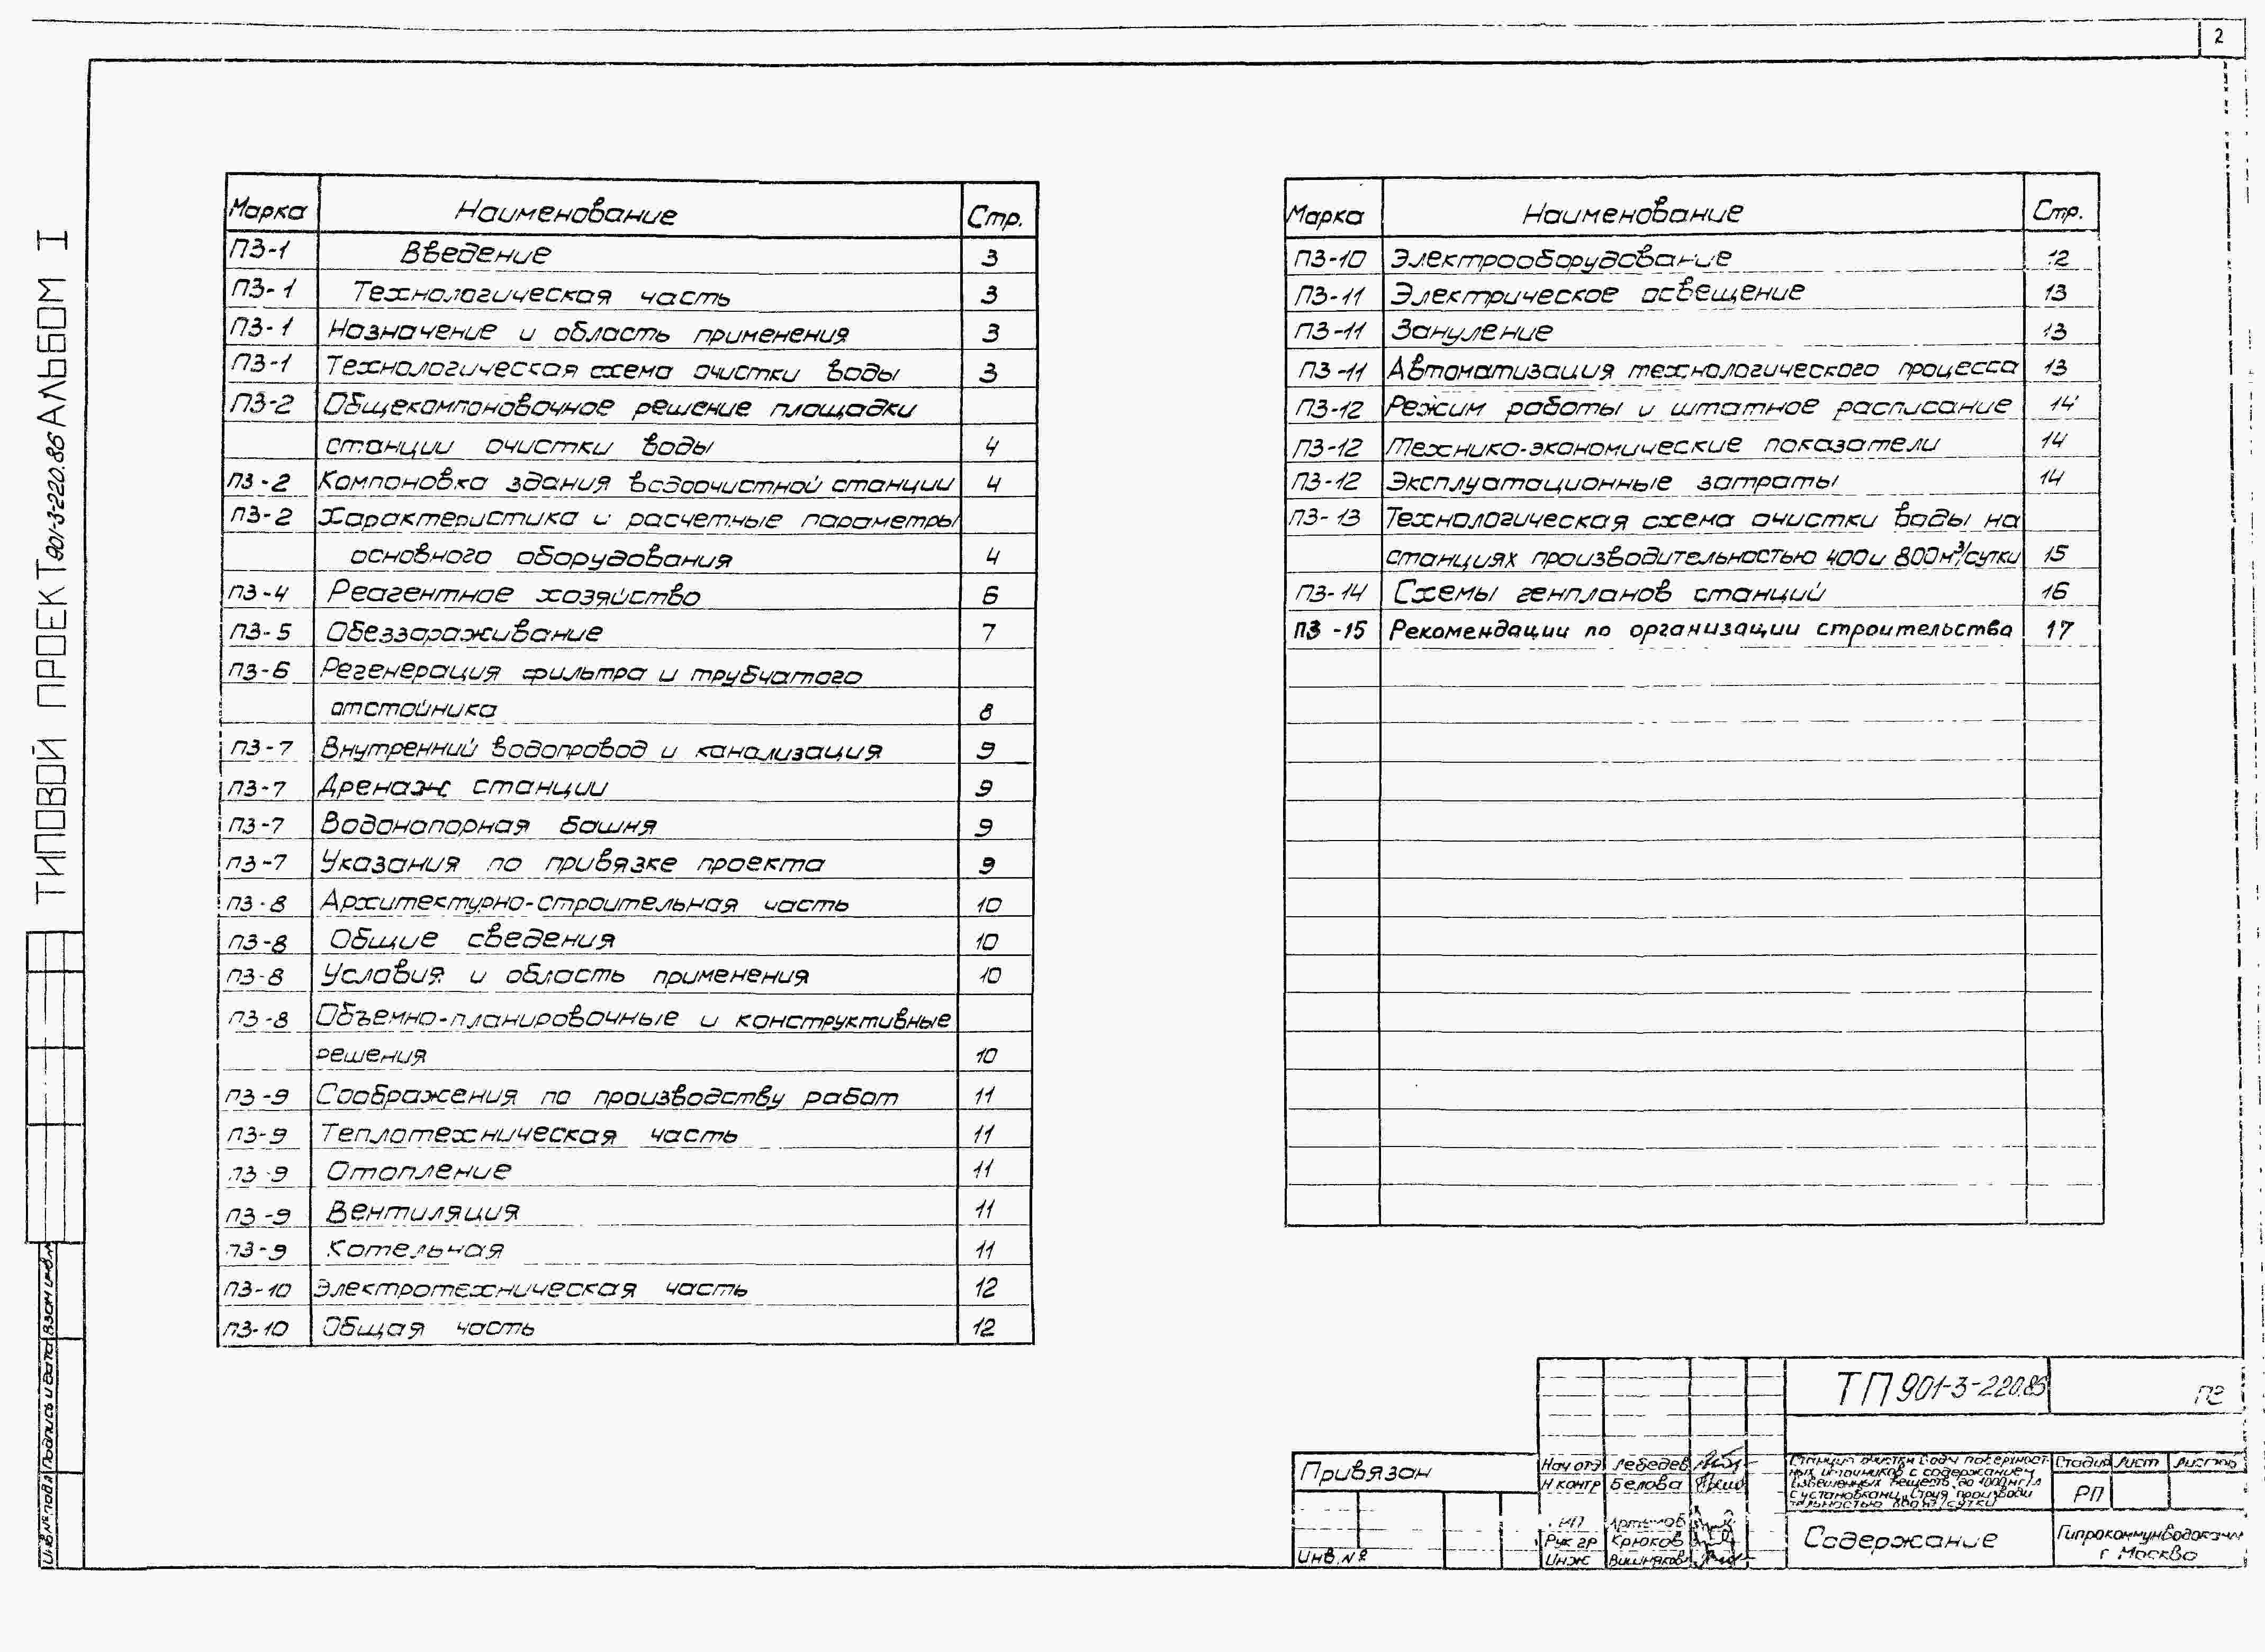 2
ТИПОВОЙ ПРОЕКТ 901-3-220.86 АЛЬБОМ I
Марка Наименование Стр.
ПЗ-1 Введение 3
ПЗ-1 Технологическая часть 3
ПЗ-1 Назначение и область применения 3
ПЗ-1 Технологическая схема очистки воды 3
ПЗ-2 Общекомпоновочное решение площадки
станции очистки воды 4
ПЗ-2 Компоновка здания водоочистной станции 4
ПЗ-2 Характеристика и расчетные параметры
основного оборудования 4
ПЗ-4 Реагентное хозяйство 6
ПЗ-5 Обеззараживание 7
ПЗ-6 Регенерация фильтра и трубчатого
отстойника 8
ПЗ-7 Внутренний водопровод и канализация 9
ПЗ-7 Дренаж станции 9
ПЗ-7 Водонапорная башня 9
ПЗ-7 Указания по привязке проекта 9
ПЗ-8 Архитектурно-строительная часть 10
ПЗ-8 Общие сведения 10
ПЗ-8 Условия и область применения 10
ПЗ-8 Объемно-планировочные и конструктивные
решения 10
ПЗ-9 Соображения по производству работ 11
ПЗ-9 Теплотехническая часть 11
ПЗ-9 Отопление 11
ПЗ-9 Вентиляция 11
ПЗ-9 Котельная 11
ПЗ-10 Электротехническая часть 12
ПЗ-10 Общая часть 12
Марка Наименование Стр.
ПЗ-10 Электрооборудование 12
ПЗ-11 Электрическое освещение 13
ПЗ-11 Зануление 13
ПЗ-11 Автоматизация технологического процесса 13
ПЗ-12 Режим работы и штатное расписание 14
ПЗ-12 Технико-экономические показатели 14
ПЗ-12 Эксплуатационные затраты 14
ПЗ-13 Технологическая схема очистки воды на
станциях производительностью 400 и 800 м³/сутки 15
ПЗ-14 Схемы генпланов станций 16
ПЗ-15 Рекомендации по организации строительства 17
Инв.№ подл Подпись и дата Взам инв.№
Привязан
Инв.№
Нач отд Лебедев
Н контр Белова
Рук гр Крюков
Инж Вишняков
ТП 901-3-220.86
ПЗ
Станция очистки воды поверхност-
ных источников с содержанием
взвешенных веществ до 1000 мг/л
с установками "Струя" производи-
тельностью 800 м³/сутки
Стадия Лист Листов
РП
Содержание
Гипрокоммунводоканал
г Москва